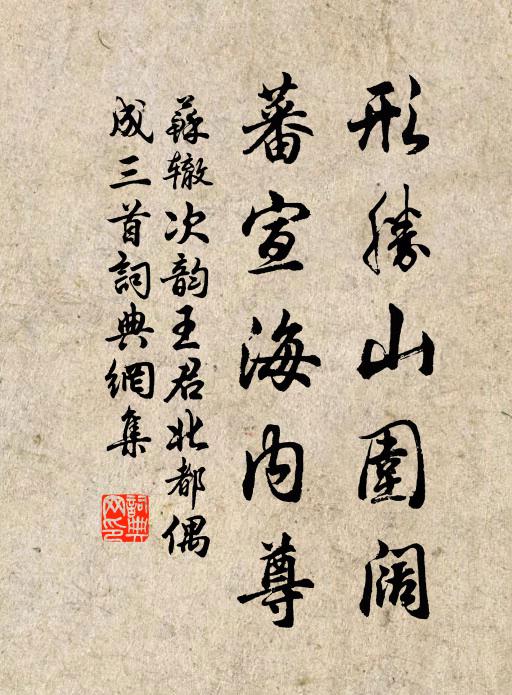 形勝山圍闊
蕃宣海内尊
蘇辙次韵王君北都偶
成三首詞典網集
詞典網印